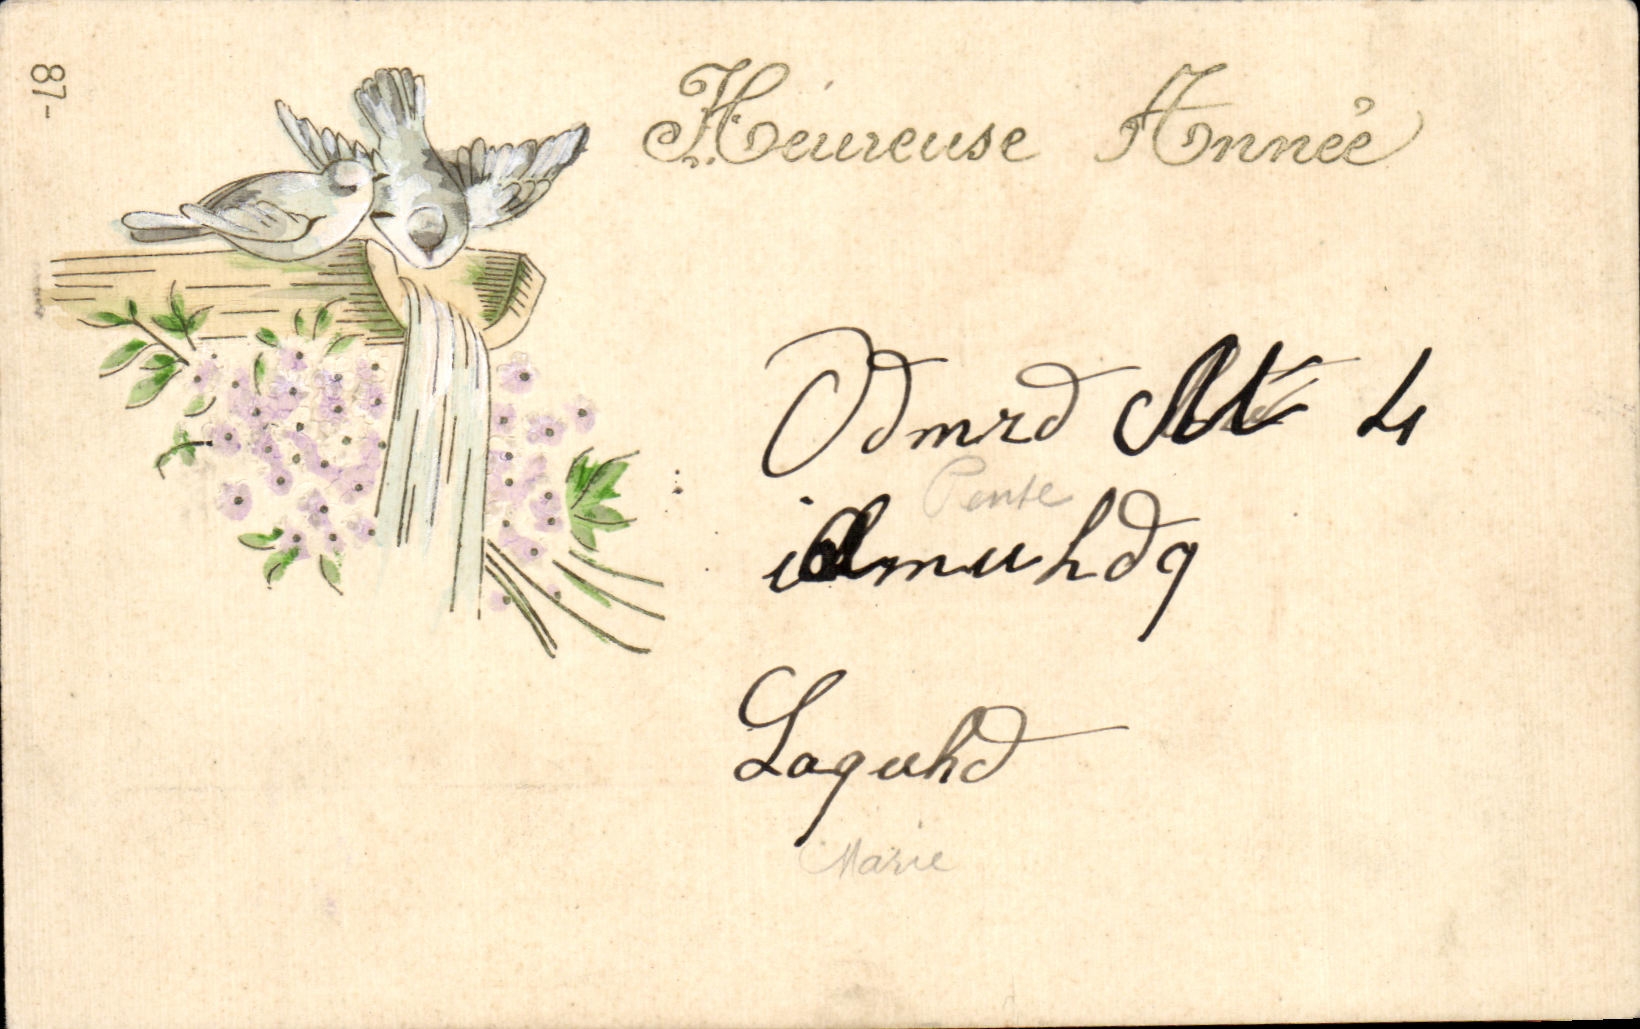 87-
Heureuse Année
Odmrd 4
Pente
muhdq
Laquhd
Marie